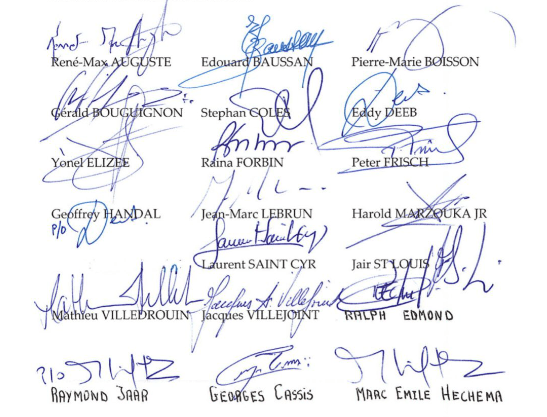 René-Max AUGUSTE Edouard BAUSSAN Pierre-Marie BOISSON
Gérald BOUGUIGNON Stephan COLES Eddy DEEB
Yonel ELIZEE Raina FORBIN Peter FRISCH
Geoffrey HANDAL Jean-Marc LEBRUN Harold MARZOUKA JR
P/O
Laurent SAINT CYR Jair ST LOUIS
Mathieu VILLEDROUIN Jacques VILLEJOINT RALPH EDMOND
P/O
RAYMOND JAAR GEORGES CASSIS MARC EMILE HECHEMA